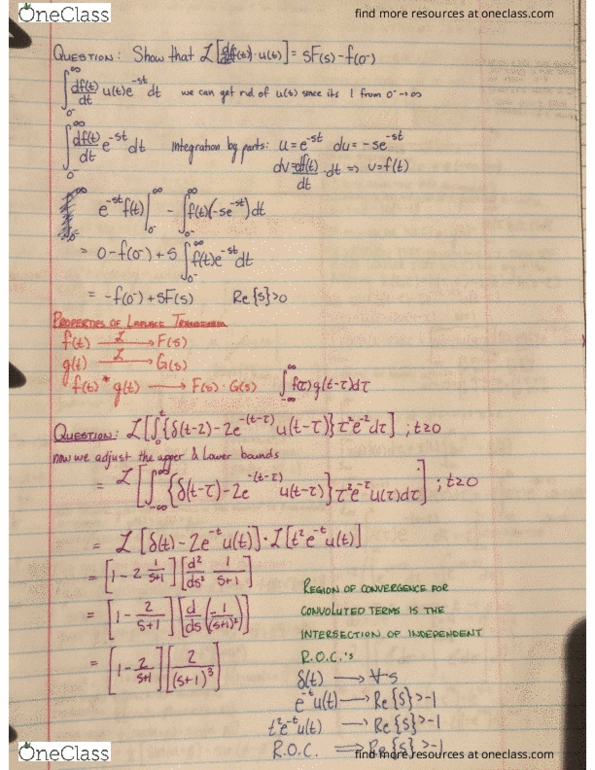 OneClass
find more resources at oneclass.com
QUESTION: Show that ℒ[df(t)/dt · u(t)] = sF(s) - f(0⁻)
∫_{0⁻}^{∞} df(t)/dt u(t)e^{-st} dt we can get rid of u(t) since its 1 from 0⁻→∞
∫_{0⁻}^{∞} df(t)/dt e^{-st} dt Integration by parts: u=e^{-st} du=-se^{-st}
dv=df(t)/dt · dt ⇒ v=f(t)
e^{-st} f(t)|_{0⁻}^{∞} - ∫_{0⁻}^{∞} f(t)(-se^{-st})dt
= 0 - f(0⁻) + s ∫_{0⁻}^{∞} f(t)e^{-st}dt
= -f(0⁻) + sF(s) Re{s}>0
PROPERTIES OF LAPLACE TRANSFORM
f(t) —ℒ→ F(s)
g(t) —ℒ→ G(s)
f(t) * g(t) → F(s) · G(s) ∫_{-∞}^{∞} f(τ)g(t-τ)dτ
QUESTION: ℒ[∫_{0}^{t} {δ(t-2)-2e^{-(t-τ)} u(t-τ)} τ²e^{-2} dτ] ; t≥0
now we adjust the upper & lower bounds
= ℒ[∫_{-∞}^{∞} {δ(t-τ)-2e^{-(t-τ)} u(t-τ)} τ²e^{-τ} u(τ)dτ] ; t≥0
= ℒ[δ(t)-2e^{-t}u(t)] · ℒ[t²e^{-t}u(t)]
= [1-2 1/(s+1)][d²/ds² 1/(s+1)]
= [1 - 2/(s+1)][d/ds(-1/(s+1)²)]
= [1 - 2/(s+1)][2/(s+1)³]
REGION OF CONVERGENCE FOR
CONVOLUTED TERMS IS THE
INTERSECTION OF INDEPENDENT
R.O.C.'s
δ(t) → ∀s
e^{-t}u(t) → Re{s}>-1
t²e^{-t}u(t) → Re{s}>-1
R.O.C. ⇒ Re{s}>-1
OneClass
find more resources at oneclass.com